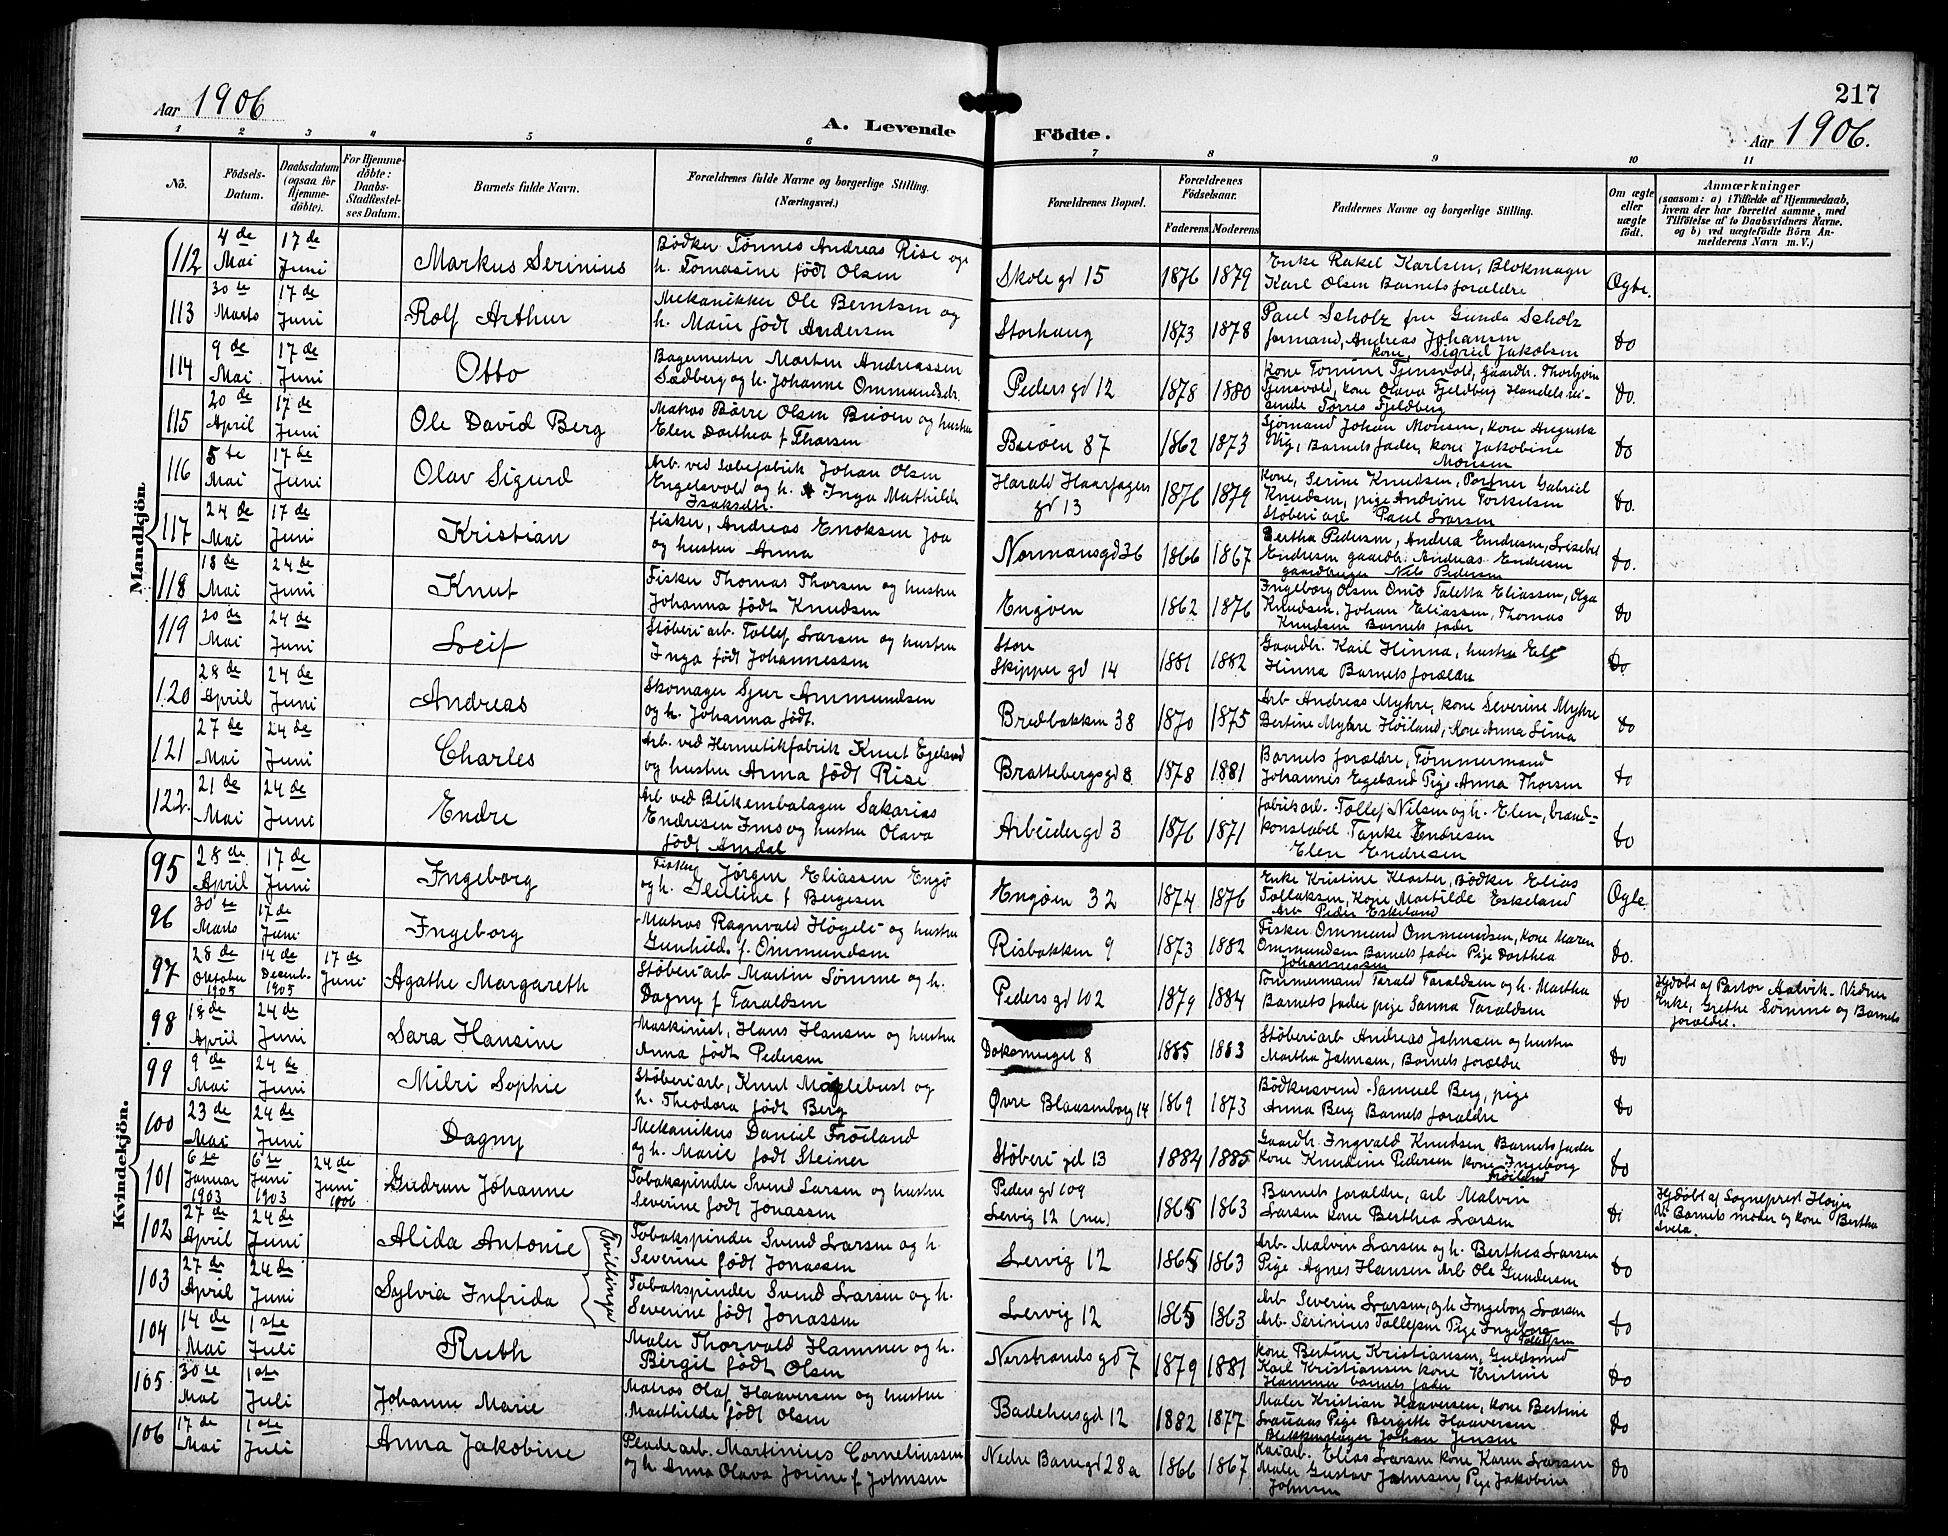 217
Aar 1906
A. Levende Födte.
Aar 1906.
1 2 3 4 5 6 7 8 9 10 11
No.
Födsels-Datum.
Daabsdatum (ogsaa for Hjemme-döbte).
For Hjemme-döbte: Daabs-Stadfestel-ses Datum.
Barnets fulde Navn.
Forældrenes fulde Navne og borgerlige Stilling. (Næringsvei.)
Forældrenes Bopæl.
Forældrenes Födselsaar.
Faderens Moderens
Faddernes Navne og borgerlige Stilling.
Om ægte eller uægte födt.
Anmærkninger
(saasom: a) i Tilfælde af Hjemmedaab,
hvem der har forrettet samme, med
Tilföielse af to Daabsvidners Navne.
og b) ved uægtefödte Börn An-
melderens Navn m. V.)
Mandkjön
112 4de Mai 17de Juni Markus Serinius
Bödker Tønnes Andreas Rise og
h. Tomasine født Olsen
Skolegd 15 1876 1879
Enke Rakel Karlsen, Blokmager
Karl Olsen Barnets forældre
Ogte.
113 30te Marts 17de Juni Rolf Arthur
Mekanikker Ole Berntsen og
h. Marie født Andersen
Storhaug 1873 1878
Paul Scholz fru Gunda Scholz
formand, Andreas Johansen
kone Sigrid Jakobsen
do
114 9de Mai 17de Juni Otto
Bagermester Morten Andreassen
Sædberg og h. Johanne Ommundsdr.
Pedersgd 12 1878 1880
Tjensvold, kone Olava Fjeldberg Handelsrei-
sende Tørres Fjeldberg
do.
115 20de April 17de Juni Ole David Berg
Matros Børre Olsen Buøen og hustru
Elen Dorthea f Thorsen
Buøen 87 1862 1873
Sjømand Johan Monsen, kone Augusta
Vig, Barnets fader, kone Jakobine
Monsen
do
116 5te Mai 17de Juni Olav Sigurd
Arb. ved Sæbefabrik Johan Olsen
Engelsvold og h. Inga Mathilde
Isaksdtr.
Harald Haarfagers
gd 13 1876 1879
Kone, Serine Knudsen, Portner Gabriel
Knudsen, pige Andrine Torkelsen
Støberiarb Paul Larsen
do.
117 24de Mai 17de Juni Kristian
fisker, Andreas Enoksen Joa
og hustru Anna
Normansgd 36 1866 1867
Bertha Pedersen, Andrea Endresen, Lisebet
Endresen gaardbr. Andreas Endresen
gaardbruger Nils Pedersen
do.
118 18de Mai 24de Juni Knut
Fisker Thomas Thorsen og hustru
Johanna født Knudsen
Engøen 1862 1876
Ingeborg Olsen Omø Taletta Eliassen, Olga
Knudsen, Johan Eliassen, Thomas
Knudsen Barnets fader
do
119 20de Mai 24de Juni Leif
Støberiarb. Tollef Larsen og hustru
Inga født Johannessen
Store
Skippergd 14 1881 1882
Gaardbr. Karl Hinna, hustru Eli
Hinna Barnets forældre
Do
120 28de April 24de Juni Andreas
Skomager Sjur Ammundsen
og h. Johanna født.
Bredbakken 38 1870 1875
Arb Andreas Myhre, kone Severine Myhre
Bertine Myhre Høiland, Kone Anna Lima
do
121 27de Mai 24de Juni Charles
Arb. ved Hermetikfabrik Knut Egeland
og hustru Anna født Rise
Brattebergsgd 8 1878 1881
Barnets forældre, Tømmermand
Johannes Egeland Pige Anna Thorsen
do
122. 21de Mai 24de Juni Endre
Arb ved Blikemballagen Sakarias
Endresen Ims og hustru Olava
født Amdal
Arbeidergd 3 1876 1871
fabrikarb. Tollef Nilsen og h. Elen, brand-
konstabel Tanke Endresen
Elen Endresen
do
Kvindekjön.
95 28de April 17de Juni Ingeborg
Fisker Jørgen Eliassen Engø
og h. f Bergesen
Engøen 32 1874 1876
Enke Kristine Kloster, Bødker Elias
Tollaksen, Kone Mathilde Eskeland
Arb Peder Eskeland
Ogte.
96 30te Marts 17de Juni Ingeborg
Matros Ragnvald Høgeli og hustru
Gunhild f. Ommundsen
Risbakken 9 1873 1882
Fisker Ommund Ommundsen, kone Maren
Ommundsen Barnets fader Pige Dorthea
Johannessen
do.
97 28de Oktober 1905 14de Decemb. 1905 17de Juni Agathe Margareth
Støberiarb Martin Sømme og h.
Dagny f Taraldsen
Pedersgd 102 1879 1884
Tømmermand Tarald Taraldsen og h. Martha
Barnets fader pige Sanna Taraldsen
do
Hjdøbt af Pastor Aalvik. Vidner
Enke, Grethe Sømme og Barnets
forældre.
98 18de April 24de Juni Sara Hansine
Maskinist, Hans Hansen og hustru
Anna født Pedersen
Doksmuget 8 1885 1883
Støberiarb Andreas Johnsen og hustru
Martha Johnsen, Barnets forældre
do
99 9de Mai 24de Juni Milri Sophie
Støberiarb, Knut Maglebust og
h. Theodora født Berg
Øvre Blaasenborg 14 1869 1873
Bødkersvend Samuel Berg, pige
Anna Berg Barnets forældre
do
100 23de Mai 24de Juni Dagny
Mekanikus Daniel Frøiland
og h. Marie født Steiner
Støberigd 13 1884 1885
Gaardbr. Ingvald Knudsen Barnets fader
kone Knudine Pedersen kone Ingeborg
Frøiland
do
101 6te Januar 1903 6te Juni 1903 24de Juni 1906 Gudrun Johanne
Tobakspinder Svend Larsen og hustru
Severine født Jonassen
Pedersgd 109
Lervig 12 (nu) 1865 1863
Barnets forældre, arb Malvin
Larsen kone Berthea Larsen
do
Hjdøbt af Sogneprest Høyer
V. Barnets moder og kone Bertha
102 27de April 24de Juni Alida Antonie
Tvillinger
Tobakspinder Svend Larsen og h.
Severine født Jonassen
Lervig 12 1865 1863
Arb. Malvin Larsen og h. Berthea Larsen
Pige Agnes Hansen Arb Ole Gundersen
do
103 27de April 24de Juni Sylvia Infrida
Tobakspinder Svend Larsen og h.
Severine født Jonassen
Lervig 12 1865 1863
Arb Severin Larsen, og h Ingeborg Larsen
Arb. Serinius Tollefsen Pige Ingeborg
Tollefsen
do
104 14de Mai 1ste Juli Ruth
Maler Thorvald Hammer og h.
Bergit født Olsen
Nerstrandsgd 7 1879 1881
kone Bertine Kristiansen, Guldsmed
Karl Kristiansen kone Kristine
Hammer barnets fader
do
105 30te Mai 1ste Juli Johanne Marie
Matros Olaf Haaversen og hustru
Mathilde født Olsen
Badehusgd 12 1882 1877
Maler Kristian Haaversen, kone Bertine
Pige Bergitte Haaversen
Blikkenslager Johan Jensen
do
106 17de Mai 1ste Juli Anna Jakobine
Pladearb. Martinius Corneliussen
og h Anna Olava Jorine f Johnsen
Nedre Banegd 28a 1866 1867
Kaiarb. Elias Larsen kone Karen Larsen
Maler Gustav Johnsen, Pige Jakobine
Johnsen
do